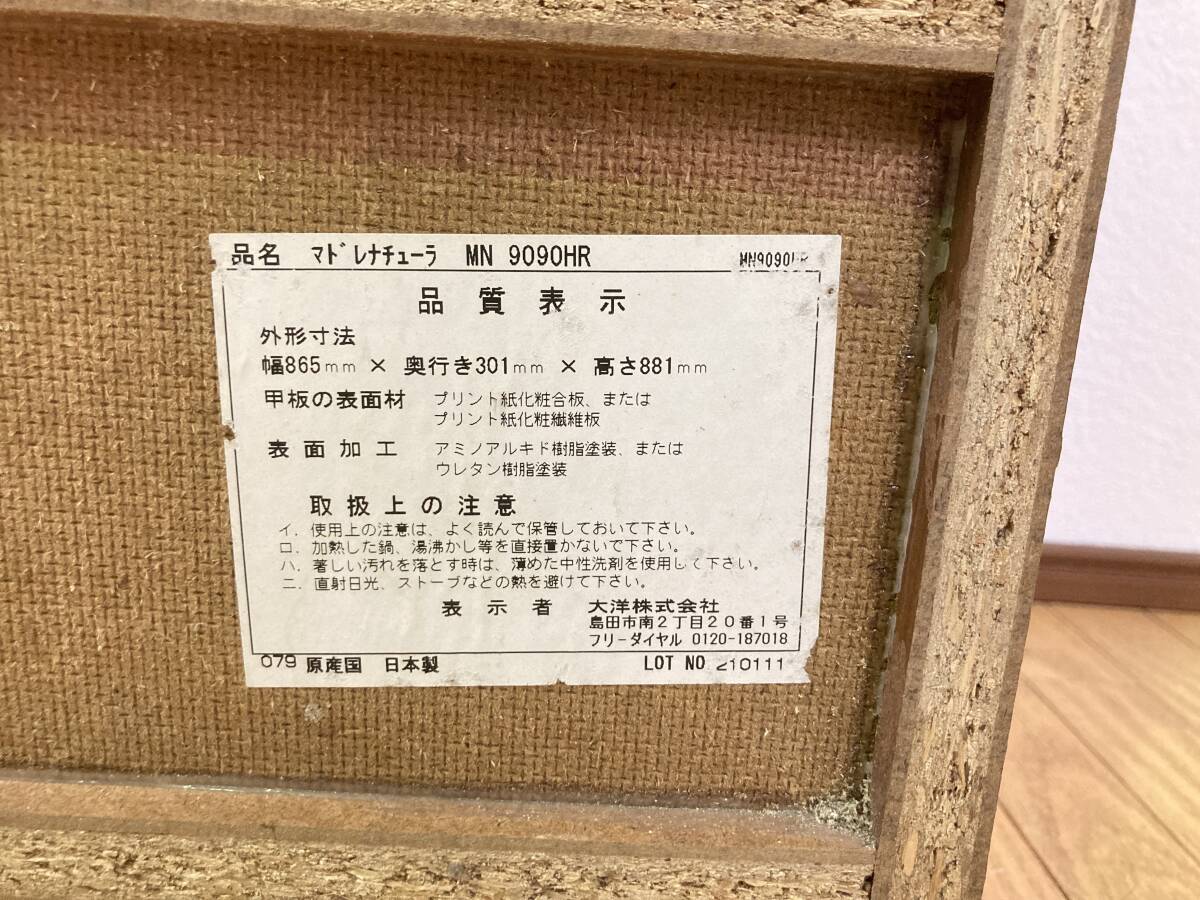 品名 マドレナチューラ MN 9090HR MN9090HR
品質表示
外形寸法
幅865mm × 奥行き301mm × 高さ881mm
甲板の表面材 プリント紙化粧合板、または
プリント紙化粧繊維板
表面加工 アミノアルキド樹脂塗装、または
ウレタン樹脂塗装
取扱上の注意
イ. 使用上の注意は、よく読んで保管しておいて下さい。
ロ. 加熱した鍋、湯沸かし等を直接置かないで下さい。
ハ. 著しい汚れを落とす時は、薄めた中性洗剤を使用して下さい。
ニ. 直射日光、ストーブなどの熱を避けて下さい。
表示者 大洋株式会社
島田市南2丁目20番1号
フリーダイヤル 0120-187018
079 原産国 日本製 LOT NO 210111